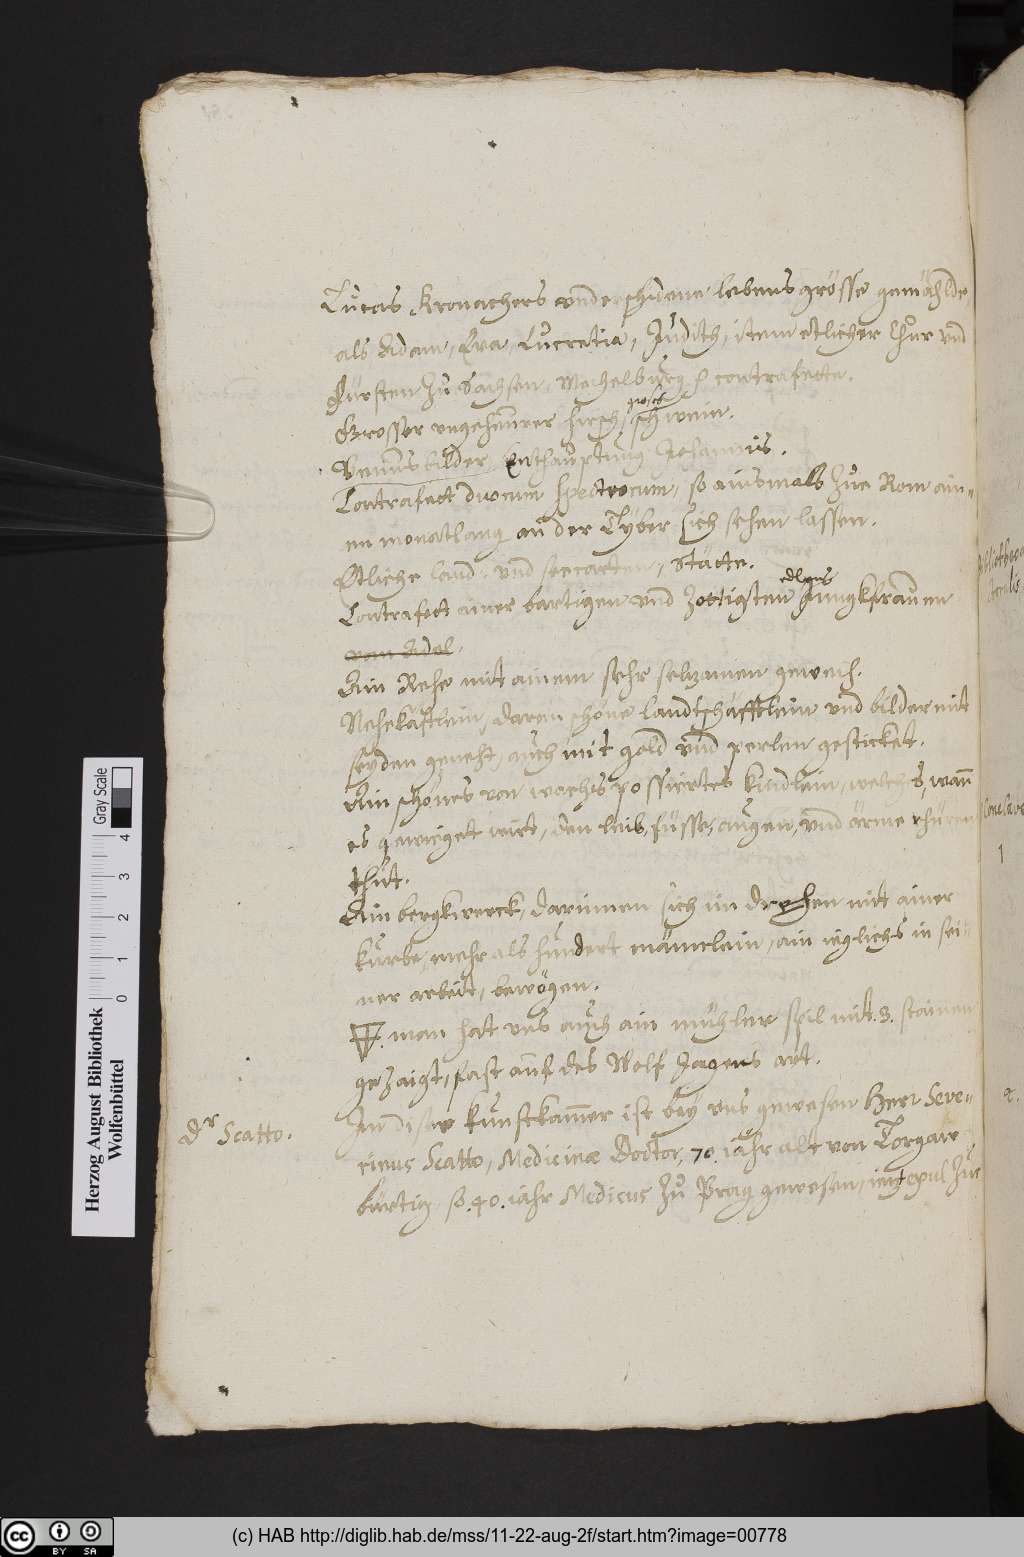 Lucas Kronachers underschidene lebens grösse gemählde,
als Adam, Eva, Lucretia, Judith, item etlicher Chur und
Fürsten zu Sachsen, Mechelburg contrafette.
Grosser ungeheurer hirsch, schwein.
Venus bilder, Enthauptung Johannis.
Contrafett duorum spectrorum, so ainsmals zue Rom ain-
en monatlang an der Tyber sich sehen lassen.
Etliche land- und seecarten, Stätte.
edlens
Contrafett ainer bartigen und zottigsten Jungkfrauen
von Adel.
Ain Rehe mit ainem sehr selzamen geweih.
Nehekästlein, darein schöne landtschäfftlein und bilder mit
seyden genehet, auch mit gold und perlen gesticket.
Ain schönes von wachs possiertes kindlein, welches, wan
es gewieget wirt, den leib, füsse, augen, und ärme rhüren
thut.
Ain bergkwerck, darinnen sich im drehen mit ainer
kurbe, mehr als hundert mänclein, ain ieglichs in sei-
ner arbeit, bewögen.
man hat uns auch ain mühlen spil mit .3. stainen
gezaigt, fast auf des Wolf Jagens art.
Dr Scatto.
In diser kunstkammer ist bey uns gewesen Herr Seve-
rinus Scatto, Medicinæ Doctor, 70. iahr alt von Torgaw
bürtig, so .40. iahr Medicus zu Prag gewesen, ietzt zue
1
2.
Herzog August Bibliothek
Wolfenbüttel
Gray Scale
0 1 2 3 4
cc BY SA
(c) HAB http://diglib.hab.de/mss/11-22-aug-2f/start.htm?image=00778